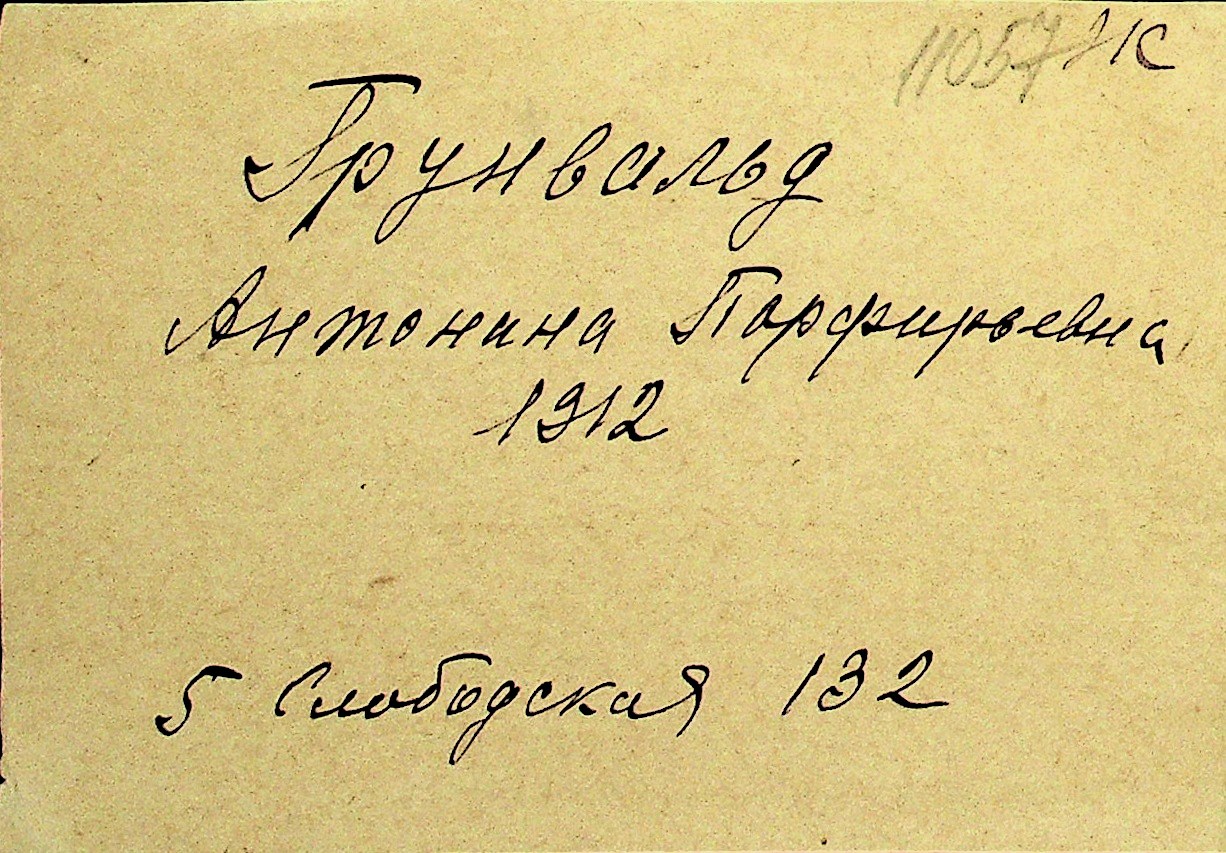 11057
Грунвальд
Антонина Парфирьевна
1912
5 Слободская 132